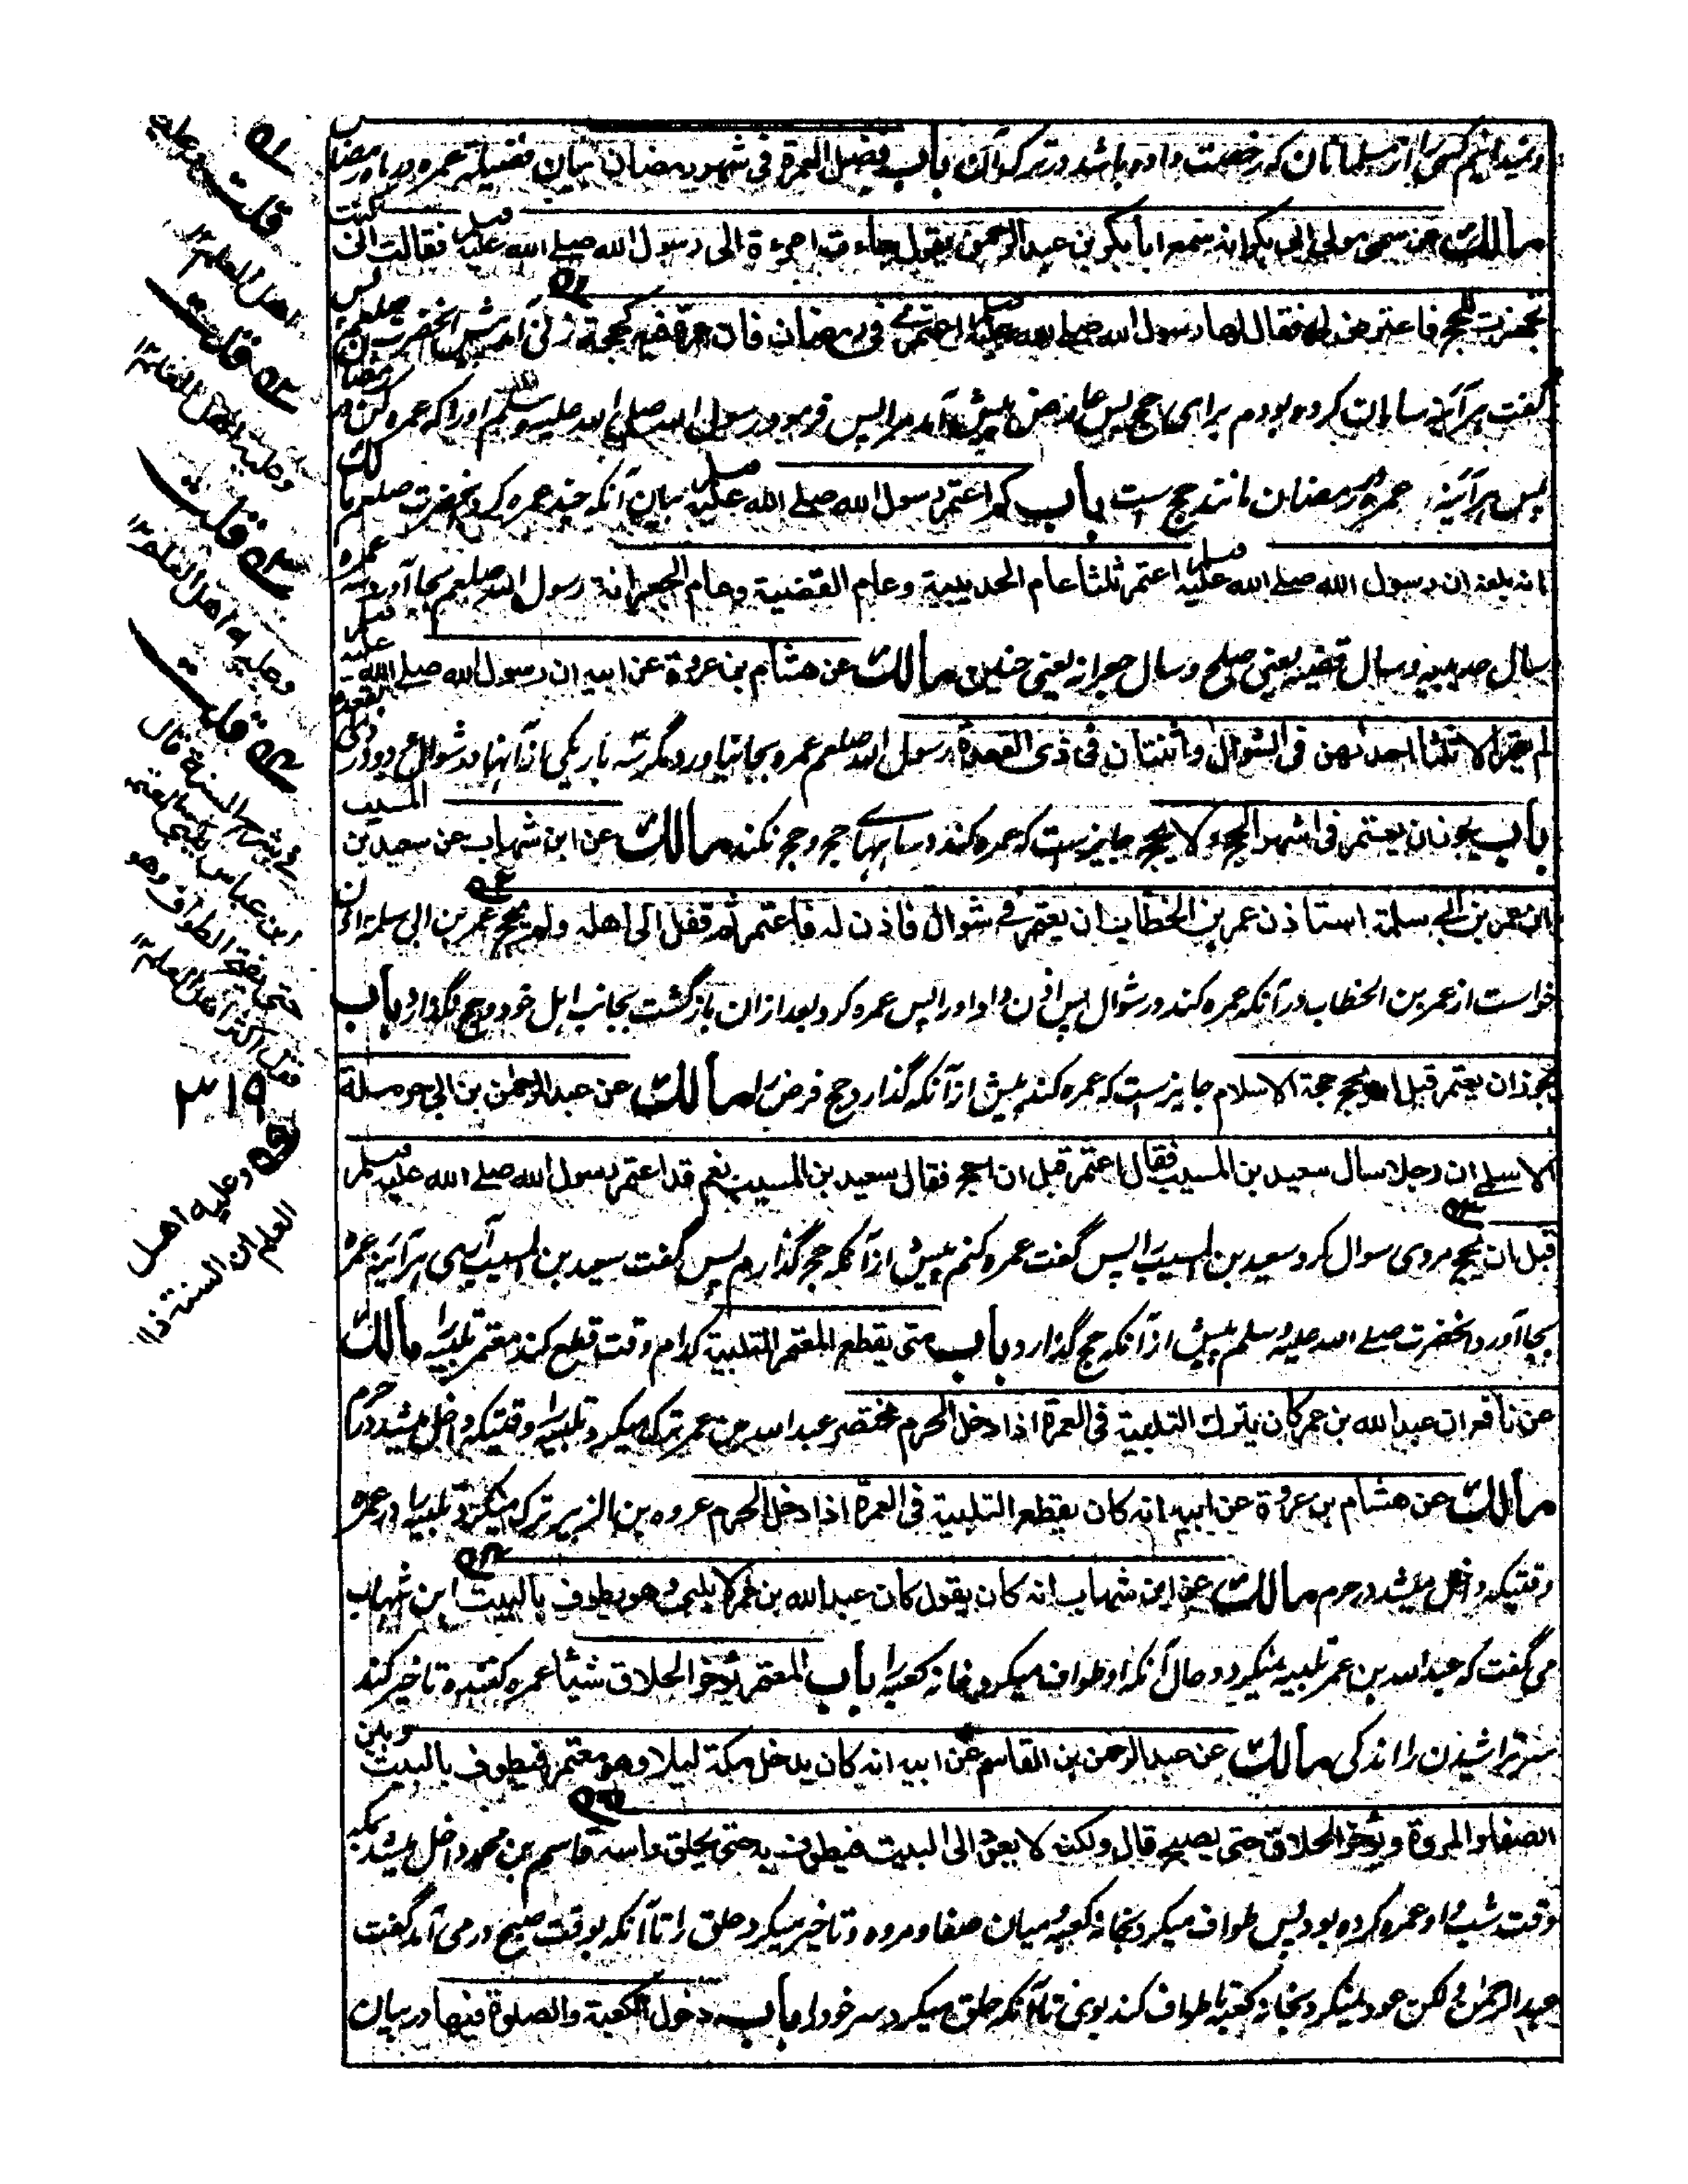 و نمیدانیم کسی را از مسلمانان که رخصت داده باشد در ترک آن باب فضل العمرة فی شهر رمضان بیان فضیلة عمره در ماه رمضان
مالک عن سمی مولی ابی بکر انه سمع ابا بکر بن عبد الرحمن یقول جاءت امرءة الی رسول الله صلے الله علیه وسلم فقالت انی کنت
تجهزت للحج فاعترض لی فقال لها رسول الله صلے الله علیه وسلم اعتمری فی رمضان فان عمرة فیه کحجة زنی آمد پیش آنحضرت صلعم پس
گفت هر آئینه سامان کرده بودم برای حج پس عارض پیش آمد مرا پس فرمود رسول الله صلی الله علیه وسلم او را که عمره کن در رمضان
پس هر آئینه عمره در رمضان مانند حج ست باب کم اعتمر رسول الله صلے الله علیه وسلم بیان آنکه چند عمره کرد آنحضرت صلعم مالک
انه بلغه ان رسول الله صلے الله علیه وسلم اعتمر ثلثا عام الحدیبیة وعام القضیة وعام الجعرانة رسول الله صلعم بجا آورد سه عمره
سال حدیبیه و سال قضیه یعنی صلح و سال جعرانه یعنی حنین مالک عن هشام بن عروة عن ابیه ان رسول الله صلے الله علیه وسلم
لم یعتمر الا ثلثا احدٰهن فی الشوال واثنتان فی ذی القعدة رسول الله صلعم عمره بجا نیاورد مگر سه بار یکی از آنها در شوال و دو در ذی القعده
باب یجوز ان یعتمر فی اشهر الحج ولا یحج جایزست که عمره کند در ماههاے حج و حج نکند مالک عن ابن شهاب عن سعید بن المسیب
ان عمر بن ابی سلمة استاذن عمر بن الخطاب ان یعتمر فے شوال فاذن له فاعتمر ثم قفل الی اهله ولم یحج عمر بن ابی سلمه اذن
خواست از عمر بن الخطاب در آنکه عمره کند در شوال پس اذن داد او را پس عمره کرد بعد ازان بازگشت بجانب اهل خود و حج نگذارد باب
یجوز ان یعتمر قبل ان یحج حجة الاسلام جایزست که عمره کند پیش از آنکه گذارد حج فرض را مالک عن عبد الرحمٰن بن ابی حرملة
الاسلمے ان رجلا سال سعید بن المسیب فقال اعتمر قبل ان احج فقال سعید بن المسیب نعم قد اعتمر رسول الله صلے الله علیه وسلم
قبل ان یحج مردی سوال کرد سعید بن المسیب را پس گفت عمره کنم پیش از آنکه حج گذارم پس گفت سعید بن المسیب آری هر آئینه عمره
بجا آورد آنحضرت صلے الله علیه وسلم پیش از آنکه حج گذارد باب متی یقطع المعتمر التلبیة کدام وقت قطع کند معتمر تلبیه را مالک
عن نافع ان عبد الله بن عمر کان یترک التلبیة فی العمرة اذا دخل الحرم مختصر عبد الله بن عمر ترک میکرد تلبیه را وقتیکه داخل میشد در حرم
مالک عن هشام بن عروة عن ابیه انه کان یقطع التلبیة فی العمرة اذا دخل الحرم عروه بن الزبیر ترک میکرد تلبیه را در عمره
وقتیکه داخل میشد در حرم مالک عن ابن شهاب انه کان یقول کان عبد الله بن عمر لا یلبی وهو یطوف بالبیت ابن شهاب
می گفت که عبد الله بن عمر تلبیه نمیکرد و حال آنکه او طواف میکرد بخانه کعبه را باب المعتمر یؤخر الحلاق شیئا عمره کننده تاخیر کند
سر تراشیدن را اندکی مالک عن عبد الرحمن بن القاسم عن ابیه انه کان یدخل مکة لیلا وهو معتمر فیطوف بالبیت وبین
الصفا والمروة ویؤخر الحلاق حتی یصبح قال ولکنه لا یعود الی البیت فیطوف به حتی یحلق راسه قاسم بن محمد داخل میشد بمکه
وقت شب و او عمره کرده بود پس طواف میکرد بخانه کعبه و میان صفا و مروه و تاخیر میکرد حلق را تا آنکه بوقت صبح در می آمد گفت
عبد الرحمٰن و لکن عود نمیکرد بخانه کعبه تا طواف کند بوی تا آنکه حلق میکرد سر خود را باب دخول الکعبة والصلوة فیها در بیان
ف۱
قلت وعلیه
اهل العلم ۱۲
ف۲ قلت
وعلیه اهل العلم ۱۲
ف۳ قلت
وعلیه اهل العلم ۱۲
ف۴ قلت
فے شرح السنة قال
ابن عباس یلبی المعتمر
حتی یفتتح الطواف وهو
قول اکثر اهل العلم ۱۲
۳۱۹
وعلیه اهل
العلم ان السنة